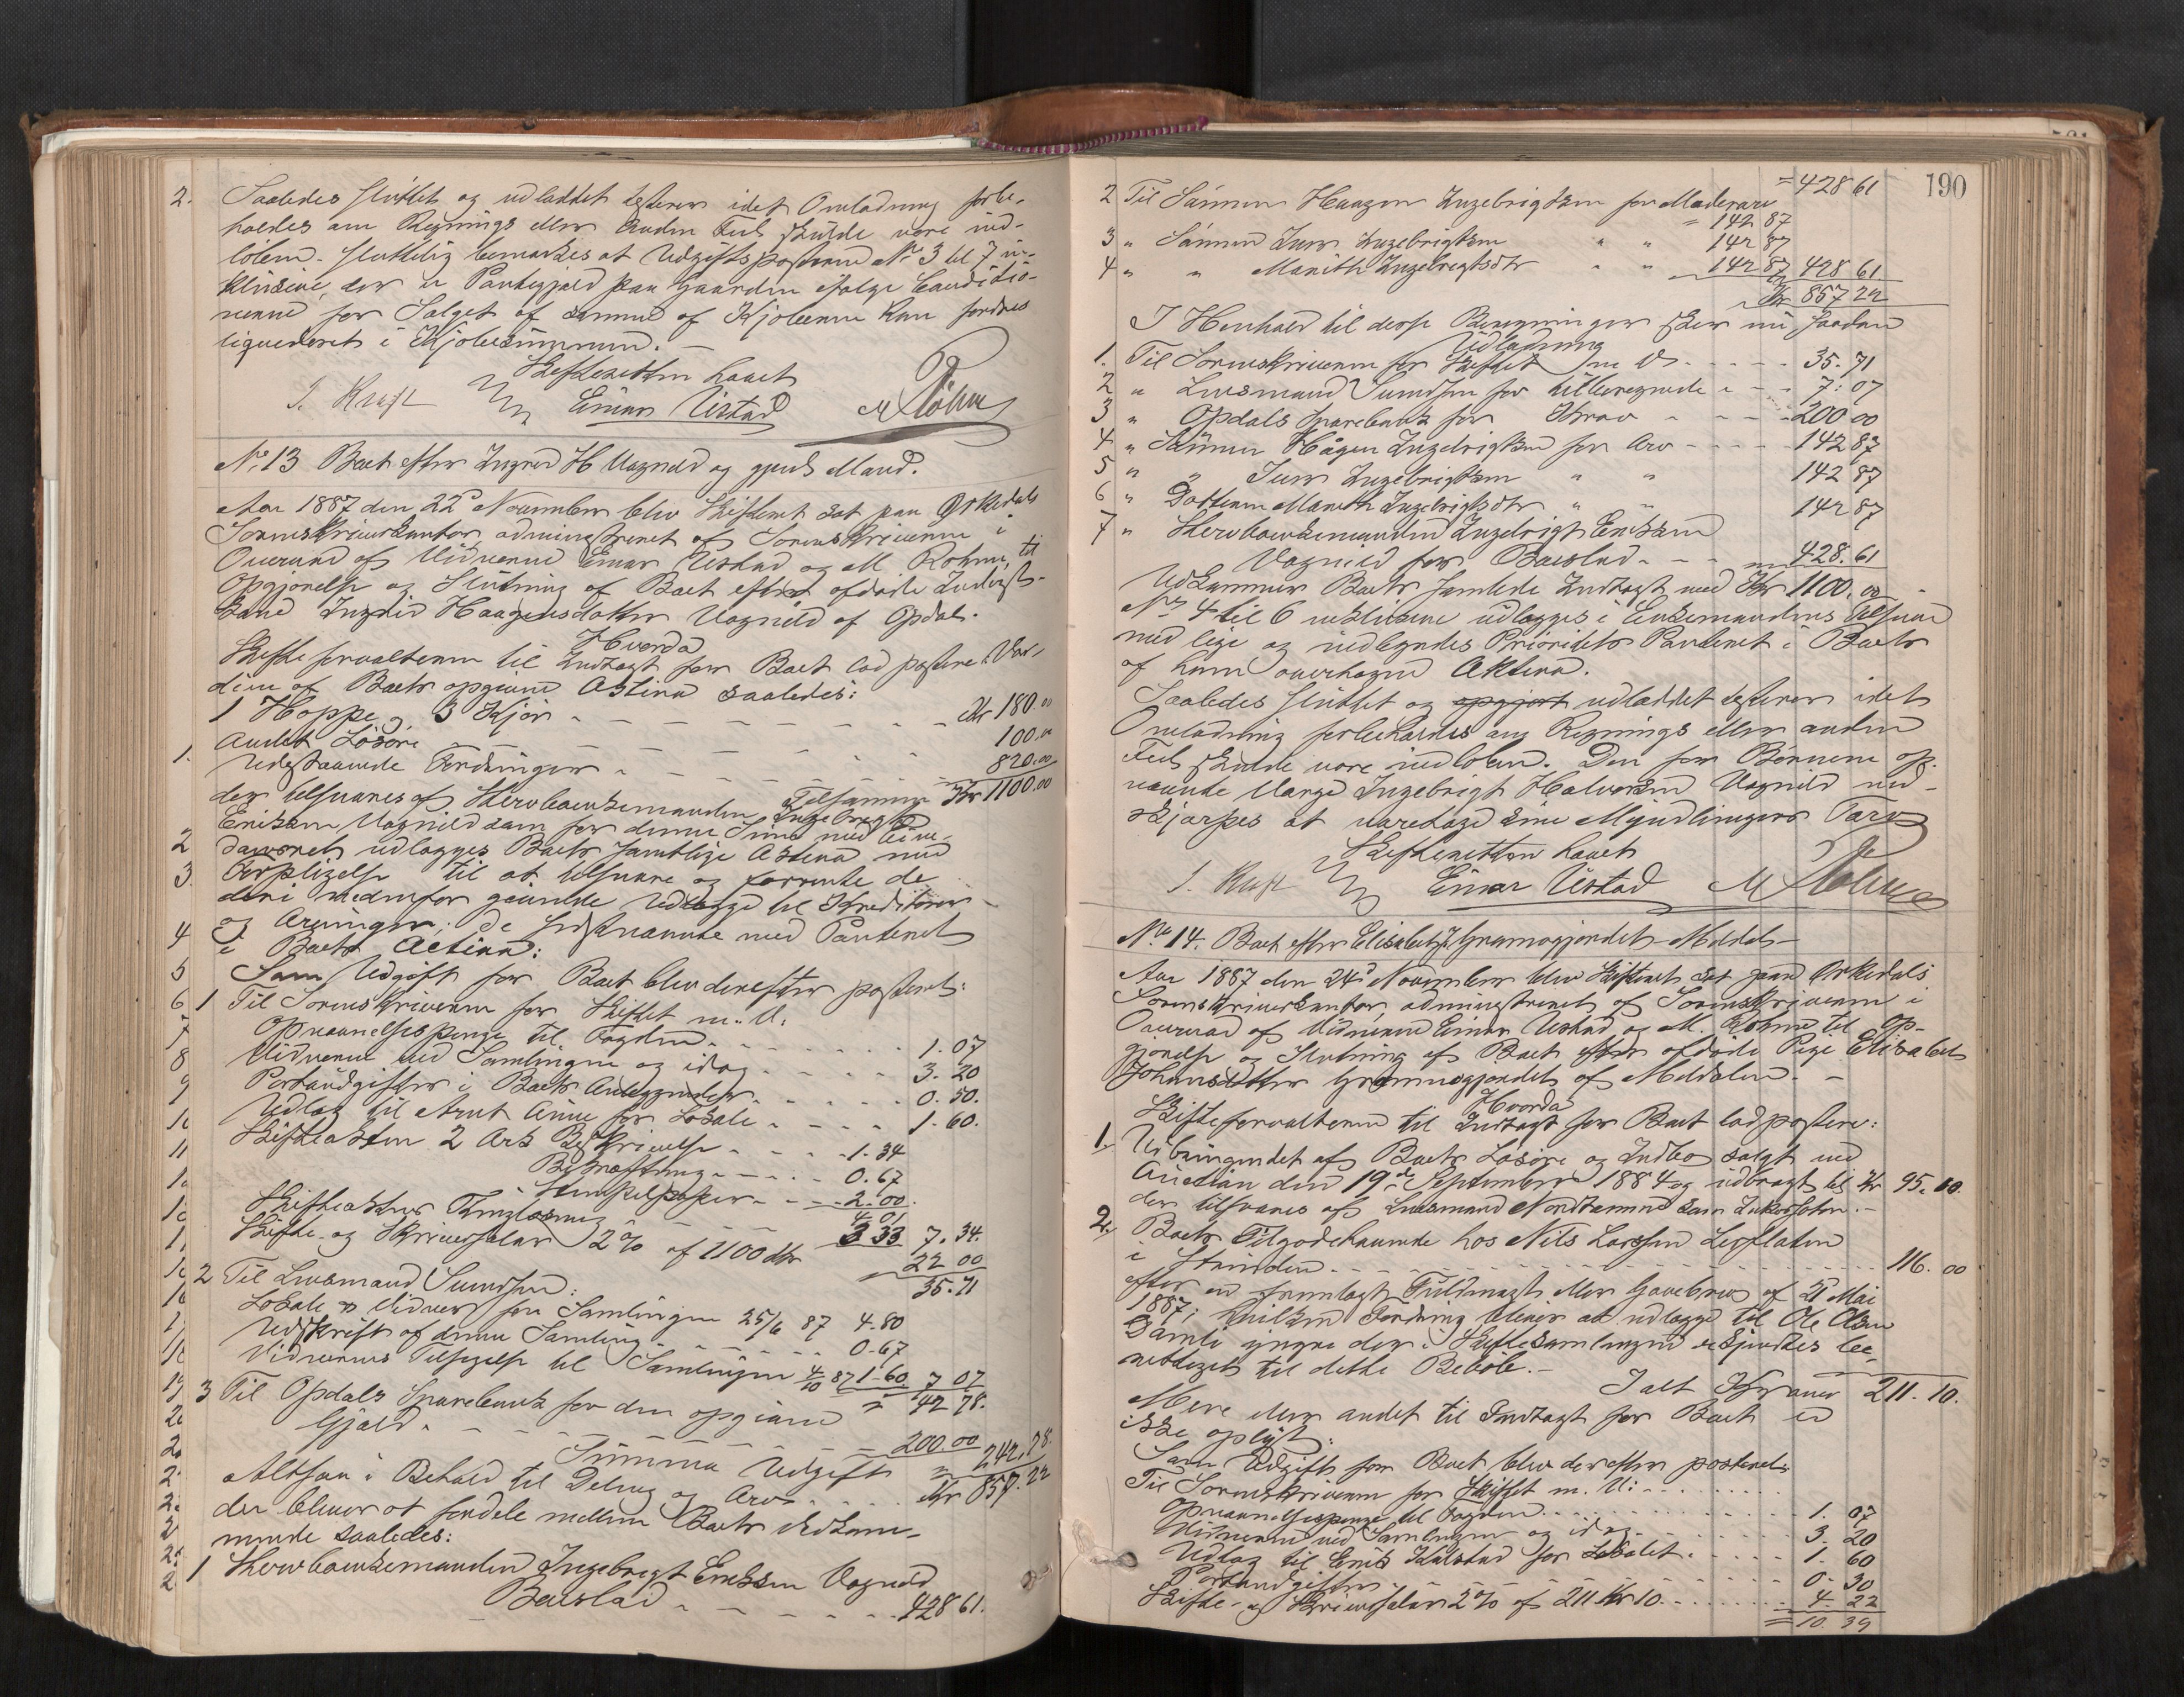 2. Saaledes sluttet og udloddet testerer idet Omlodning forbe-
holdes om Regnings eller anden Feil skulde være ind-
løben. Sluttelig bemærkes at Udgiftsposterne No 3 til 7 in-
klusive, der er Pantegjæld paa Gaarden ifølge Conditio-
nerne for Salget af samme af Kjøberne kan fordres
liqvideret i Kjøbesummen. –
Skifteretten hævet
J. Kraft Einar Ustad M Rohme
No 13 Boet efter Ingrid H Vognild og gjenl. Mand.
Aar 1887 den 22de November blev Skifteret sat paa Orkedals
Sorenskriverkontor, administreret af Sorenskriveren i
Overvær af Vidnerne Einar Ustad og M. Rohme, til
Opgjørelse og Slutning af Boet efter afdøde Inderst-
kone Ingrid Haagensdatter Vognild af Opdal.
Hvorda
Skifteforvalteren til Indtægt for Boet lod postere Vær-
dien af Boets opgivne Activa saaledes:
1 Hoppe og 3 Kjør - - - Kr 180.00
Andet Løsøre - - - 100.00
1. Udestaaende Fordringer - - - 820.00
Tilsammen Kr 1100.00
der tilsvares af Stervboenkemanden Ingebrigt
Eriksen Vognild som for denne Sum med Eien-
2 domsret udlægges Boets samtlige Activa med
3. Forpligtelse til at tilsvare og forrente de
deri nedenfor givende Udlægge til Kreditorer
4 og Arvinger; De sidstnævnte med Panteret
i Boets Activa:
5 Som Udgift for Boet blev derefter posteret:
6 1 Til Sorenskriveren for Skiftet m. V:
7 Opnævnelsespenge til Fogden - - - 1.07
8 Vidnerne ved Samlingen og idag - - - 3.20
9 Portoudgifter i Boets Anliggender - - - 0.50.
10 Udlæg til Arnt Aune for Lokale - - - 1.60.
11 Skifteakten 2 Ark Beskrivelse - - - 1.34
Bekræftning - - - 0.67
Stempelpapir - - - 2.00
4 01
Skifteakters Thinglæsning 3 33 7.34.
Skifte- og Skriversalær 2% af 1100 Kr 22 00
35.71
2 Til Lensmand Sundsen:
Lokale & Vidner for Samlingen 25/6 87 4.80
Udskrift af denne Samling - - - 0.67
Vidnernes Tilsigelse til Samlingen 4/10 87 1.60 7 07
42 78.
3 Til Opdals Sparebank for den opgivne
Gjæld - - - 200.00
Summa Udgift 242.78.
Altsaa i Behold til Deling og Arv - - - Kr 857.22
der bliver at fordele mellem Boets Vedkom-
mende saaledes:
1 Stervboenkemanden Ingebrigt Eriksen Vognild
Boeslod - - - 428 61.
190
428 61
2 Til Sønnen Haagen Ingebrigtsen for Mødrearv
142 87
3 " Sønnen Iver Ingebrigtsen " " 142 87
4 " " Marith Ingebrigtsdtr " " 142 87 428 61
Kr 857 22
I Henhold til disse Beregninger sker nu saadan
Udlodning
1. Til Sorenskriveren for Skiftet m V - - - 35.71
2 " Lensmand Sundsen for tilberegnede - - - 7.07
3 " Opdals Sparebank for Krav - - - 200 00
4 " Sønnen Hågen Ingebrigtsen for Arv - - - 142 87
5 " " Iver Ingebrigtsen " " 142 87
6 " Datteren Marith Ingebrigtsdtr " " 142 87
7 " Stervboenkemanden Ingebrigt Eriksen
Vognild for Boeslod - - - 428.61
Udkommer Boets samlede Indtægt med Kr 1100.00
No 4 til 6 inklusive udlægges i Enkemandens Tilsvar
med lige og nedbyndes Prioritets Panteret i Boets
af ham overtagne Aktiva.
Saaledes sluttet og opgjort udloddet testerer idet
Omlodning forbeholdes om Regnings eller anden
Feil skulde være indløben. Den for Børnene op-
nævnte Værge Ingebrigt Halvorsen Vognild ind-
skjærpes at varetage sine Myndlingers Tarv
Skifteretten hævet
J. Kraft Einar Ustad M Rohme
No 14. Boet efter Elisabet J. Gramogjordet – Meldal –
Aar 1887 den 24d November blev Skifteret sat paa Orkedals
Sorenskriverkontor, administreret af Sorenskriveren i
Overvær af Vidnerne Einar Ustad og M. Rohme til Op-
gjørelse og Slutning af Boet efter afdøde Pige Elisabet
Johansdatter Gramogjordet af Meldalen. –
Hvorda
Skifteforvalteren til Indtægt for Boet lod postere:
1. Udbringendet af Boets Løsøre og Indbo solgt ved
Auction den 19de September 1884 og udbragt til Kr 95.10.
der tilsvares af Lensmand Nordtømme som Inkassator. –
2. Boets Tilgodehavende hos Nils Larsen
i Strinden - - - 116.00
efter en fremlagt Fuldmagt eller Gavebrev af 21 Mai
1887; hvilken Fordring bliver at udlægge til Ole Olsen
Damli yngre der i Skiftesamlingen erkjendtes be-
rettiget til dette Beløb. –
Ialt Kroner 211.10.
Mere eller andet til Indtægt for Boet er
ikke oplyst:
Som Udgift for Boet blev derefter posteret:
Til Sorenskriveren for Skiftet m. V: - - -
Opnævnelsespenge til Fogden - - - 1. 07
Vidnerne ved Samlingen og idag - - - 3. 20
Udlæg til Erik Kalstad for Lokalet - - - 1. 60
Portoudgifter - - - 0. 30
Skifte- og Skriversalær 2% af 211 Kr 10 - - - 4. 22
10. 39